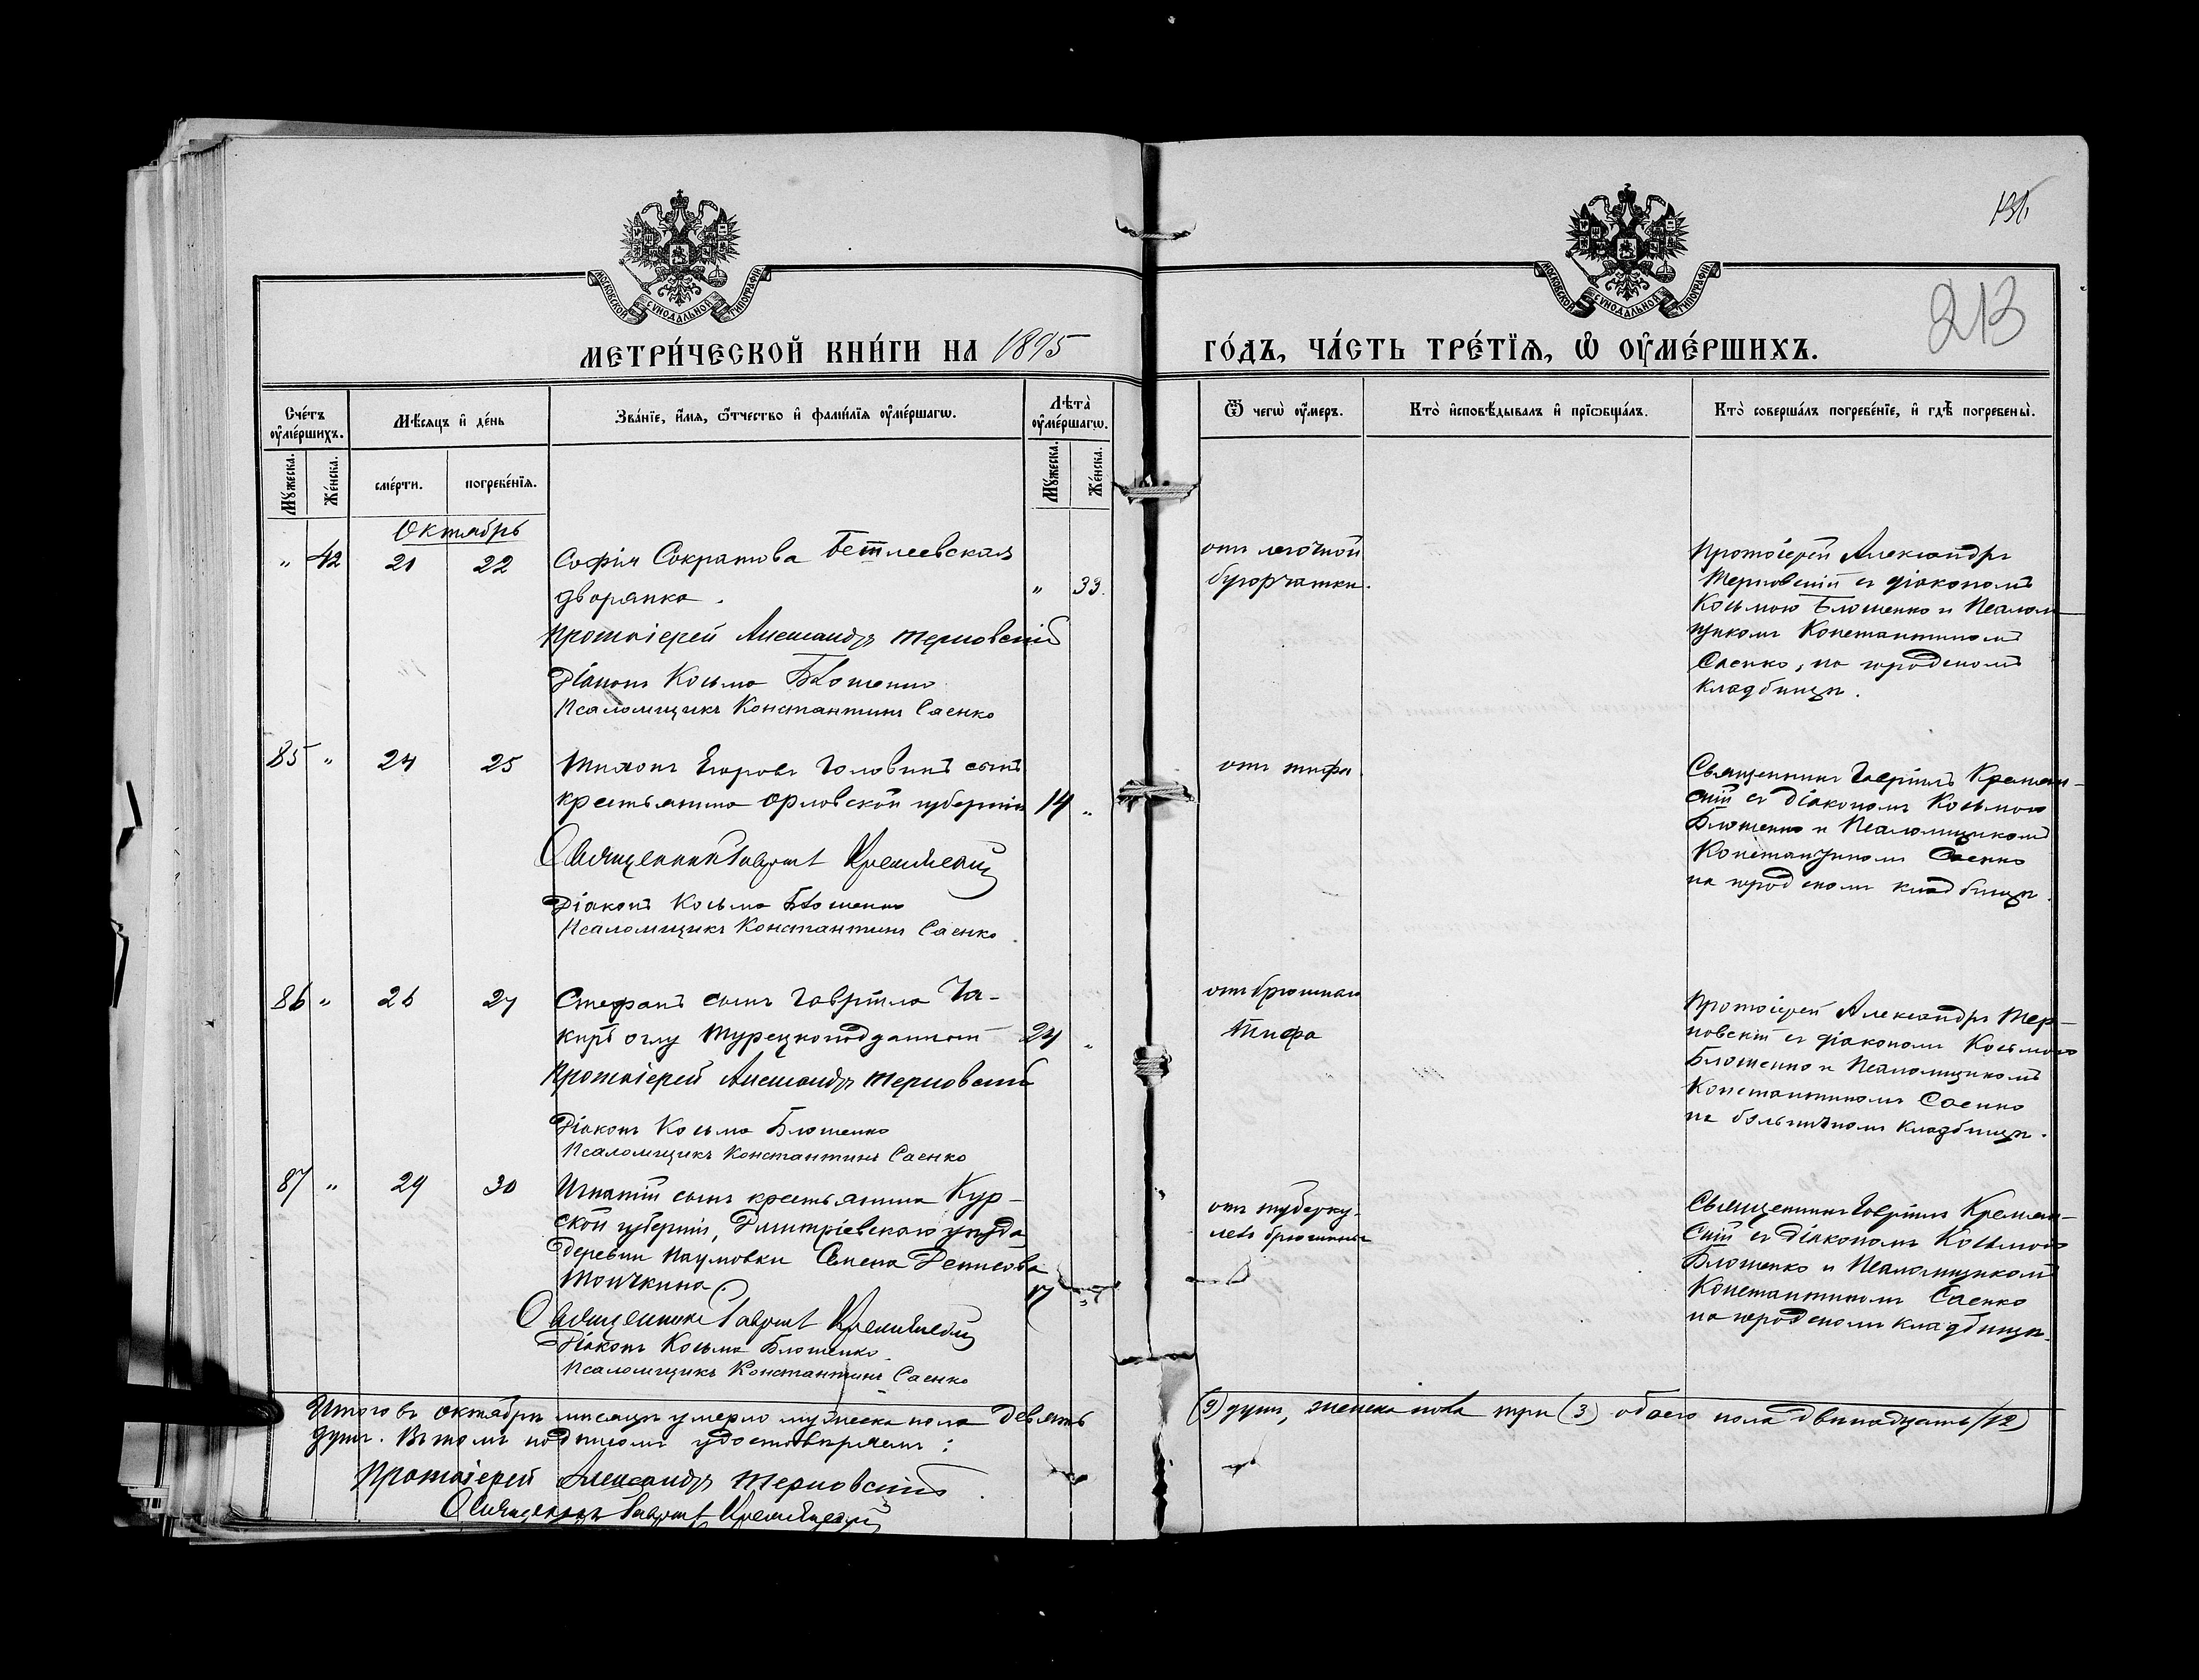 131
213
МОСКОВСКОЙ СѴНОДАЛЬНОЙ ТИПОГРАФІИ
МОСКОВСКОЙ СѴНОДАЛЬНОЙ ТИПОГРАФІИ
МЕТРИ́ЧЕСКОЙ КНИ́ГИ НА 1895 ГО́ДЪ, ЧА́СТЬ ТРЕ́ТЇѦ, Ѡ҆ ОУ҆МЕ́РШИХЪ.
Сче́тъ оу҆ме́ршихъ.
Мꙋ́жеска.
Же́нска.
Мѣ́сѧцъ и҆ де́нь
сме́рти.
погребе́нїѧ.
Зва́нїе, и҆́мѧ, ѻ҆́тчество и҆ фами́лїѧ оу҆ме́ршагѡ.
Лѣ́та оу҆ме́ршагѡ.
Мꙋ́жеска.
Же́нска.
Ѿ чегѡ̀ оу҆́меръ.
Кто̀ и҆сповѣ́дывалъ и҆ прїѡбща́лъ.
Кто̀ соверша́лъ погребе́нїе, и҆ гдѣ̀ погребены̀.
Октябрь
" 42 21 22
Софія Сократова Бетлеевская
дворянка.
" 33.
Протоіерей Александръ Терновскій
Діаконъ Косьма Блошенко
Псаломщикъ Константинъ Саенко
отъ легочной
бугорчатки.
Протоіерей Александръ
Терновскій съ діакономъ
Косьмою Блошенко и Псалом
щикомъ Константиномъ
Саенко, на городскомъ
кладбищѣ.
85 " 24 25
Тихонъ Егоровъ Головинъ сынъ
крестьянина Орловской губерніи
14 "
Священникъ Гавріилъ Кремянскій
Діаконъ Косьма Блошенко
Псаломщикъ Константинъ Саенко
отъ тифа
Священникъ Гавріилъ Кремян-
скій съ діакономъ Косьмою
Блошенко и Псаломщикомъ
Константиномъ Саенко
на городскомъ кладбищѣ.
86 " 26 27
Стефанъ сынъ Гавріила Ча-
киръ оглу Турецкоподданный
24 "
Протоіерей Александръ Терновскій
Діаконъ Косьма Блошенко
Псаломщикъ Константинъ Саенко
отъ брюшнаго
тифа
Протоіерей Александръ Тер-
новскій съ діакономъ Косьмою
Блошенко и Псаломщикомъ
Константиномъ Саенко
на больничномъ кладбищѣ.
87 " 29 30
Игнатій сынъ крестьянина Кур-
ской губерніи, Дмитріевскаго уѣзда
деревни Наумовки Семена Денисова
17
Священникъ Гавріилъ Кремянскій
Діаконъ Косьма Блошенко
Псаломщикъ Константинъ Саенко
отъ туберку-
Священникъ Гавріилъ Кремян-
скій съ діакономъ Косьмою
Блошенко и Псаломщикомъ
Константиномъ Саенко
на городскомъ кладбищѣ.
Итого въ октябрѣ мѣсяцѣ умерло мужеска пола девять (9) душъ, женска пола три (3) обоего пола двѣнадцать (12)
душъ. Въ томъ подписомъ удостовѣряемъ:
Протоіерей Александръ Терновскій.
Священникъ Гавріилъ Кремянскій